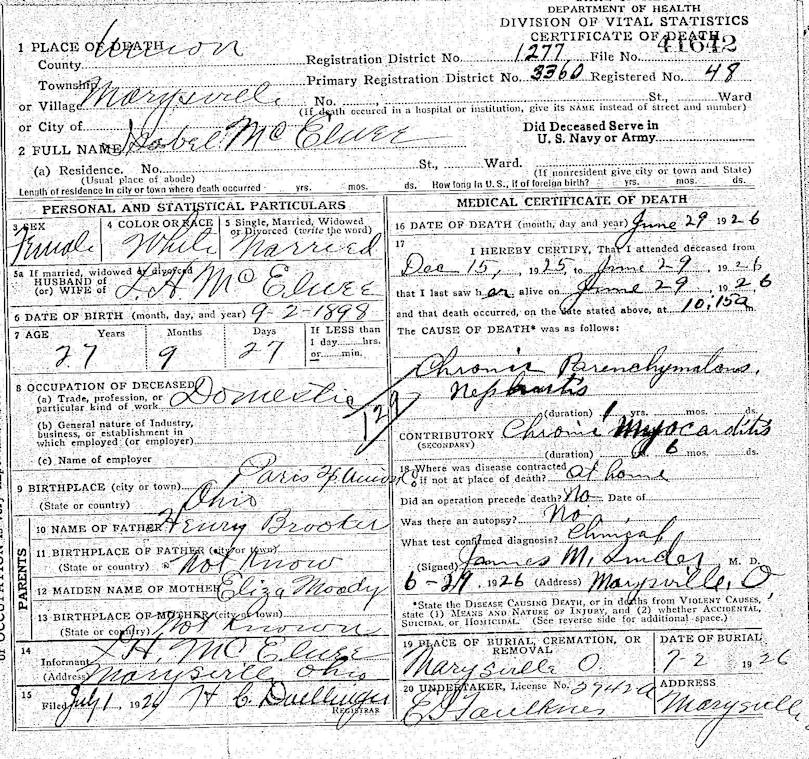 DEPARTMENT OF HEALTH
DIVISION OF VITAL STATISTICS
CERTIFICATE OF DEATH
1 PLACE OF DEATH
County Union
Registration District No. 1277 File No. 41642
Township
Primary Registration District No. 3360 Registered No. 48
or Village Marysville No. St., Ward
(If death occured in a hospital or institution, give its NAME instead of street and number)
or City of
Did Deceased Serve in
U. S. Navy or Army
2 FULL NAME Isabel McElwee
(a) Residence. No. St., Ward.
(Usual place of abode) (If nonresident give city or town and State)
Length of residence in city or town where death occurred yrs. mos. ds. How long in U. S., if of foreign birth? yrs. mos. ds.
PERSONAL AND STATISTICAL PARTICULARS
3 SEX Female
4 COLOR OR RACE White
5 Single, Married, Widowed
or Divorced (write the word)
Married
5a If married, widowed or divorced
HUSBAND of
(or) WIFE of L. H. McElwee
6 DATE OF BIRTH (month, day, and year) 9-2-1898
7 AGE Years Months Days If LESS than
1 day hrs.
or min.
27 9 27
8 OCCUPATION OF DECEASED
(a) Trade, profession, or
particular kind of work Domestic
(b) General nature of Industry,
business, or establishment in
which employed (or employer)
(c) Name of employer
129
9 BIRTHPLACE (city or town) Paris Union Co
(State or country) Ohio
PARENTS
10 NAME OF FATHER Henry Brooker
11 BIRTHPLACE OF FATHER (city or town)
(State or country) Not Know
12 MAIDEN NAME OF MOTHER Eliza Moody
13 BIRTHPLACE OF MOTHER (city or town)
(State or country) Not Known
14
Informant L. H. McElwee
(Address) Marysville Ohio
15
Filed July 1, 1926 H C Duellinger
REGISTRAR
MEDICAL CERTIFICATE OF DEATH
16 DATE OF DEATH (month, day, and year) June 29 1926
17
I HEREBY CERTIFY, That I attended deceased from
Dec 15, 1925, to June 29, 1926
that I last saw her alive on June 29, 1926
and that death occurred, on the date stated above, at 10:15a m.
The CAUSE OF DEATH* was as follows:
Chronic Parenchymatous,
Nephritis
(duration) 1 yrs. mos. ds.
CONTRIBUTORY Chronic Myocarditis
(SECONDARY)
(duration) yrs. 6 mos. ds.
18 Where was disease contracted
if not at place of death? at home
Did an operation precede death? No Date of
Was there an autopsy? No
What test confirmed diagnosis? Clinical
(Signed) James M. Snider M. D.
6-29, 1926 (Address) Marysville, O.
*State the DISEASE CAUSING DEATH, or in deaths from VIOLENT CAUSES,
state (1) MEANS AND NATURE OF INJURY, and (2) whether ACCIDENTAL,
SUICIDAL or HOMICIDAL. (See reverse side for additional space.)
19 PLACE OF BURIAL, CREMATION, OR
REMOVAL
Marysville O.
DATE OF BURIAL
7-2 1926
20 UNDERTAKER, License No. 3942a
E J Faulkner
ADDRESS
Marysville